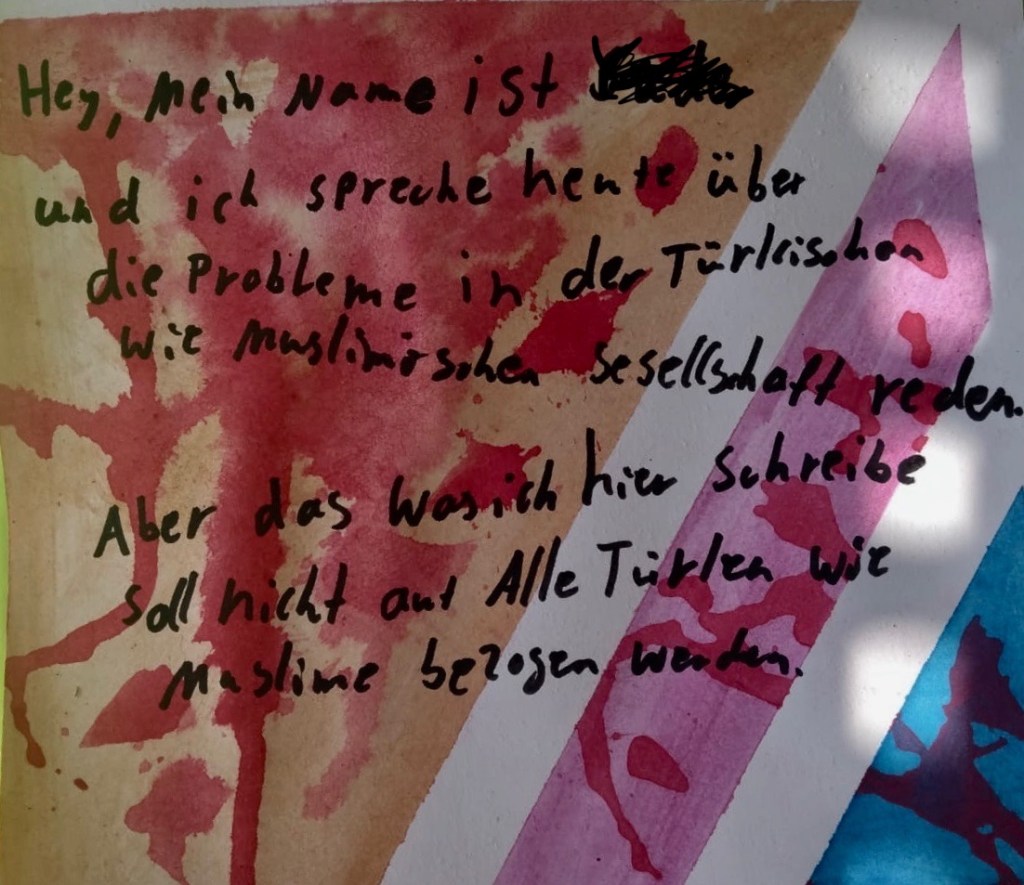 Hey, mein Name ist
und ich spreche heute über
die Probleme in der Türkischen
wie muslimirschen Gesellschaft reden.
Aber das was ich hier schreibe
soll nicht auf Alle Türken wie
Muslime bezogen werden.